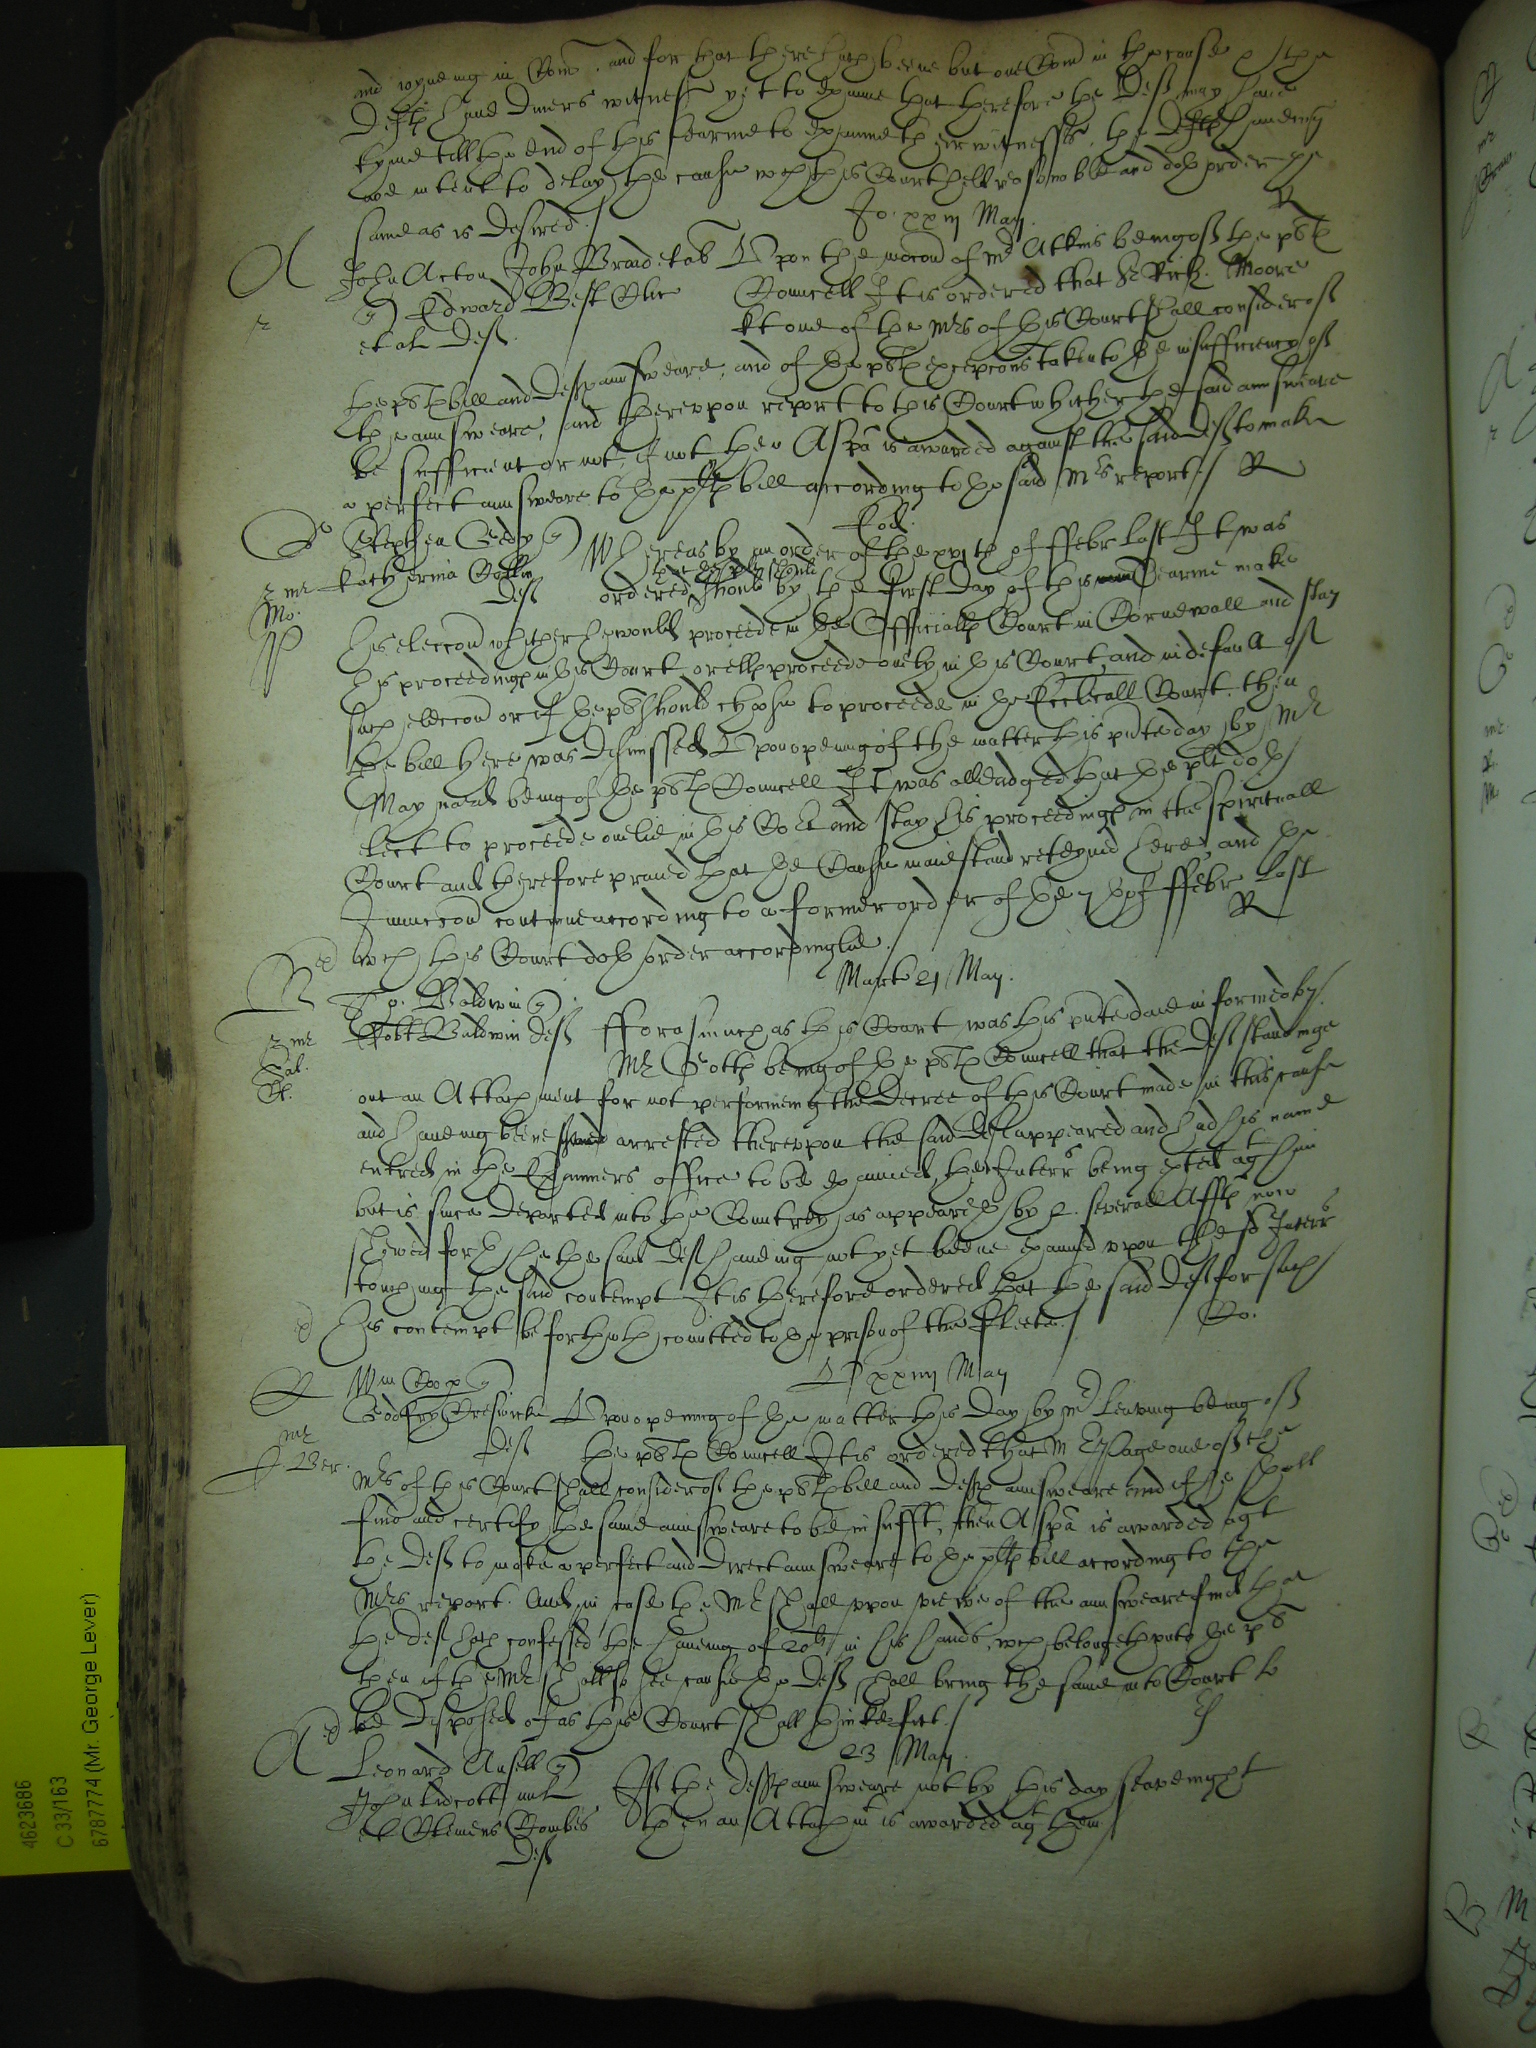 and ioyneing in Com, and for that there hath beene but one Com in the cause & the
Deftes haue diuers witnesses yet to examine that therefore the Deftes may haue
tyme till the end of this tearme to examine their witnesses, the Deftes haueing
noe intent to delay the cause wch this Court helde reasonable and doth order the
same as is desired. R
Jo. xxiij May.
A
John Acton John Braid et al Vpon the mocon of Mr Atkins being of the plts
Edward Best Cler Councell It is ordered that Sr Rich. Moore
et al Deftes kt one of the Mrs of this Court shall consider of
the plts bill and Deftes aunsweare, and of the plts excepcons taken to the insufficiency of
the aunsweare, and therevpon report to this Court whither the said aunsweare
be sufficient or not, if not then A spa is awarded against the said Deftes to make
a perfect aunsweare to the plts bill according to the said Mrs report. R
Eod.
Stephen Gedy
Katherina Coffin
Deft
Mo.
Whereas by an order of the xvjth of ffebr last It was
ordered that the plt should by the first day of this Tearme make
his eleccon whither he would proceede in the Officialls Court in Cornewall and stay
his proceedings in this Court or ells proceede onely in this Court, and in default of
such eleccon or if the plt should chose to proceede in the Eccleall Court, then
the bill here was dismissed Vpon opening of the matter this pnte day by Mr
Maynard being of the plts Councell It was alleadged that the plt doth
elect to proceede onelie in this Cort and stay his proceedings in the spirituall
Court and therefore praied that the Cause maie stand reteyned here, and the
Iniunccon continue according to a former order of the 7th of ffebr last
wch this Court doth order accordinglie. R
Martis 21 May.
Baldwin
Robt Baldwin Deft
fforasmuch as this Court was this pnte daie informed by
Mr being of the plts Councell that the Deft standinge
out an Attachment for not performeing the Decree of this Court made in this cause
and haueing beene arrested therevpon the said Deft appeared and had his name
entred in the Examiners office to be examined, the Interrs being exted agt him
but is since departed into the Countrey, as appeareth by 2. severall Affts now
shewed forth he the said Deft haueing not yet beene examined vpon the sd Interrs
touching the said contempt It is therefore ordered that the said Deft for such
his contempt be forthwith comitted to the prison of the Fleete. Co.
V xxiiij May
Wm Coop
Godfry Creswicke
Deft
Vpon opening of the matter this day by Mr Leaving being of
the plts Councell It is ordered that Mr Page one of the
Mrs of this Court shall consider of the plts bill and Defts aunsweare and if he shall
find and certify the same aunsweare to be insufft, then A spa is awarded agt
the Deft to make a perfect and direct aunsweare to the plts bill according to the
Mrs report. And in case the Mr shall vpon viewe of the aunsweare find that
the Deft hath confessed the haueing of 20li in his hands, wch belongeth vnto the plt
then if the Mr shall so see cause the Deft shall bring the same into Court to
be disposed of as this Court shall thinke fitt.
23 May.
Leonard Ansell
John Lidcott mil
et Clemens Combes
Deft
If the Deftes aunsweare not by this day seavenight
then an Attachmt is awarded agt them
4623686
C 33/163
6787774 (Mr. George Lever)